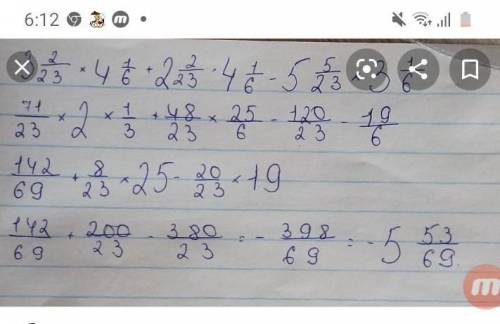 6:12
3 2/23 × 4 1/6 + 2 2/23 · 4 1/6 - 5 5/23 × 3 1/6
71/23 × 2 × 1/3 + 48/23 × 25/6 - 120/23 - 19/6
142/69 + 8/23 × 25 - 20/23 × 19
142/69 + 200/23 - 380/23 = - 398/69 = -5 53/69